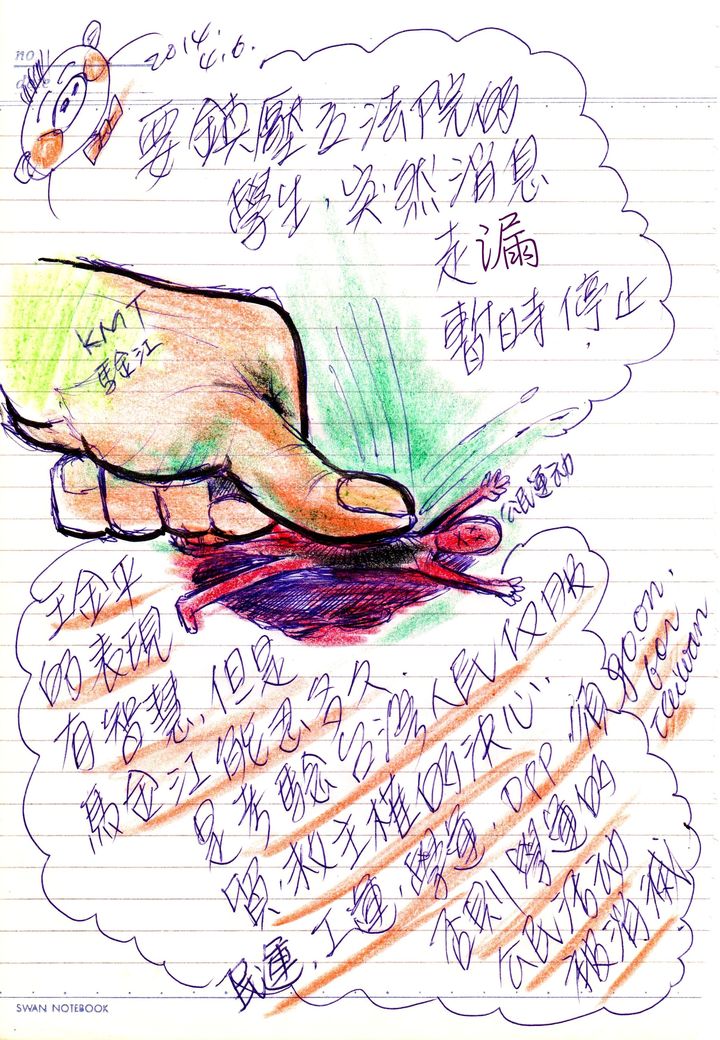 no.
2014.
4.6.
要鎮壓立法院的
學生,突然消息
走漏
暫時停止
KMT
馬金江
公民運动
王金平
的表現
有智慧,但是
馬金江能忍多久.
是考驗台湾人民反服
貿,救主權的決心.
民運,工運,學運,DPP 須 go on.
for
Taiwan
否則學運的
公民活动
被消滅
SWAN NOTEBOOK